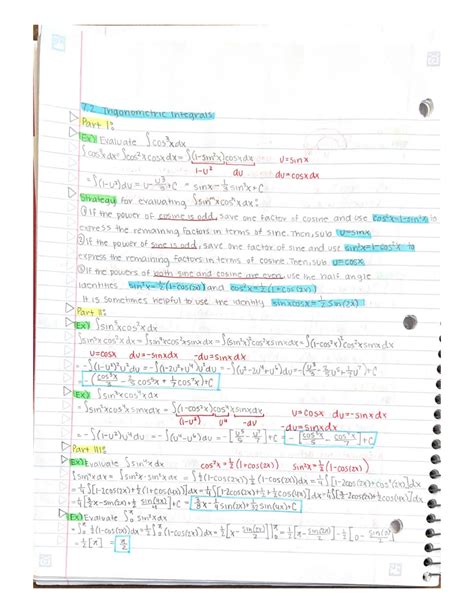 7.2 Trigonometric Integrals
Part I:
Ex) Evaluate ∫cos³xdx
∫cos³xdx = ∫cos²xcosxdx = ∫(1-sin²x)cosxdx u=sinx
1-u² du du=cosxdx
=∫(1-u²)du = u-u³/3+C = sinx-1/3sin³x+C
Strategy for evaluating
① If the power of cosine is odd, save one factor of cosine and use cos²x=1-sin²x to
express the remaining factors in terms of sine. Then, sub u=sinx
② If the power of sine is odd, save one factor of sine and use sin²x=1-cos²x to
express the remaining factors in terms of cosine. Then, sub u=cosx
③ If the powers of both sine and cosine are even, use the half angle
identities sin²x=½(1-cos(2x)) and cos²x=½(1+cos(2x))
It is sometimes helpful to use the identity sinxcosx=½sin(2x)
Part II:
Ex) ∫sin⁵xcos²xdx
∫sin⁵xcos²xdx = ∫sin⁴xcos²xsinxdx = ∫(sin²x)²cos²xsinxdx = ∫(1-cos²x)²cos²xsinxdx
u=cosx du=-sinxdx -du=sinxdx
=-∫(1-u²)²u²du = -∫(1-2u²+u⁴)u²du = -∫(u²-2u⁴+u⁶)du = -(u³/3-2u⁵/5+u⁷/7)+C
Ex) ∫sin³xcos⁴xdx
=∫sin²xcos⁴xsinxdx = ∫(1-cos²x)cos⁴xsinxdx u=cosx du=-sinxdx
(1-u²) u⁴ -du -du=sinxdx
=-∫(1-u²)u⁴du = -∫(u⁴-u⁶)du = -[u⁵/5-u⁷/7]+C = -[cos⁵x/5-cos⁷x/7]+C
Part III:
Ex) Evaluate ∫sin⁴xdx cos²x=½(1+cos(2x)) sin²x=½(1-cos(2x))
∫sin⁴xdx = ∫sin²x·sin²xdx = ∫½(1-cos(2x))·½(1-cos(2x))dx = ¼∫[1-2cos(2x)+cos²(2x)]dx
Ex) Evaluate ∫₀ sin²xdx
=½[π] = π/2